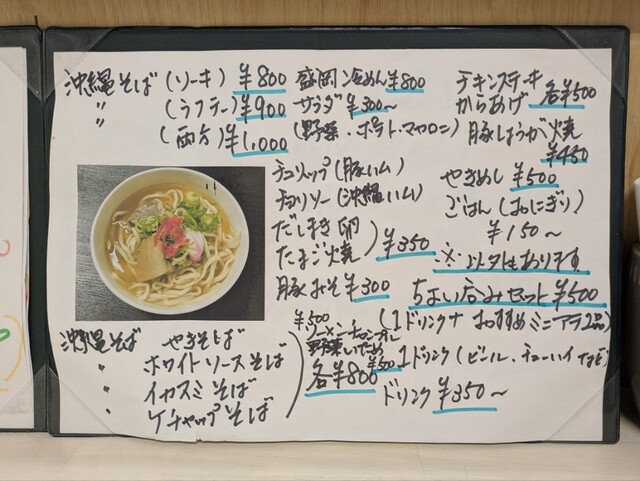 沖縄そば (ソーキ) ¥800
〃 (ラフテー) ¥900
(両方) ¥1,000
盛岡冷めん ¥800
サラダ ¥300~
(野菜・ポテト・マカロニ)
チキンステーキ
からあげ 各¥500
豚しょうが焼
¥450
チュリップ (豚ハム)
チョリソー (沖縄ハム)
だしまき卵
たまご焼 ) ¥350
豚みそ ¥300
やきめし ¥500
ごはん (おにぎり)
¥150~
※以外もあります
ちょい呑みセット ¥500
(1ドリンク+おすすめミニアラ2品)
1ドリンク (ビール・チューハイなど)
ドリンク ¥350~
沖縄そば やきそば
〃 ホワイトソースそば
〃 イカスミそば
〃 ケチャップそば
各¥800
¥500
ソーメンチャンプル
野菜いため
¥500